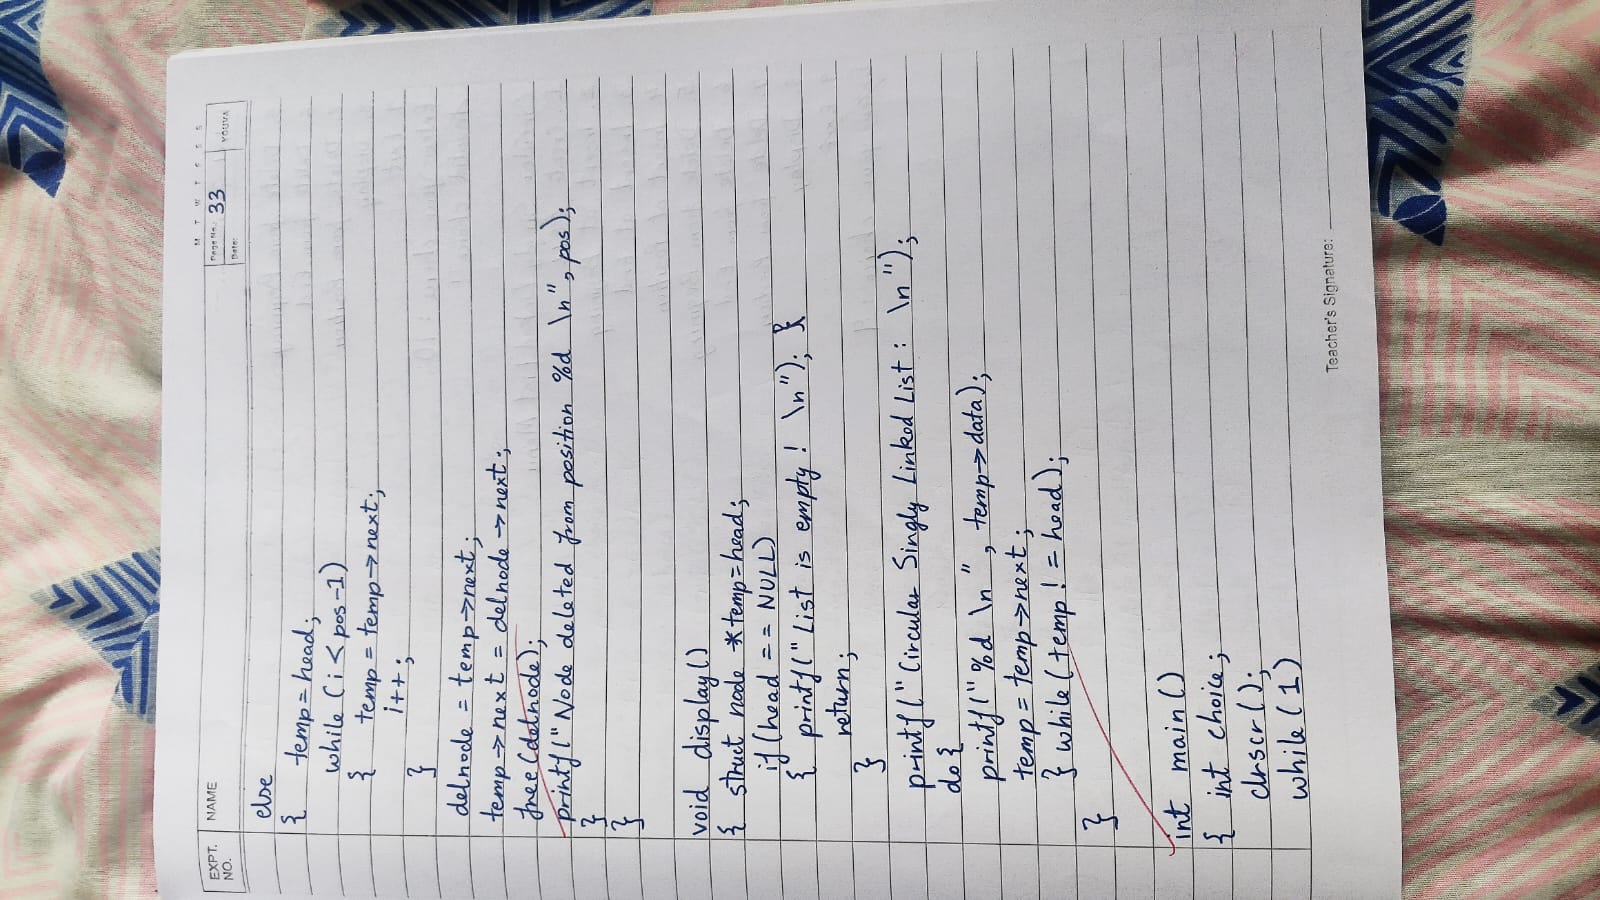 EXPT. NO.
NAME
M T W T F S S
Page No.: 33
Date:
YOUVA
else
{ temp = head;
while (i < pos-1)
{ temp = temp->next;
i++;
}
delnode = temp->next;
temp->next = delnode->next;
free(delnode);
printf("Node deleted from position %d \n", pos);
}
}
void display()
{ struct node *temp=head;
if (head == NULL)
{ printf("List is empty! \n");
return;
}
printf("Circular Singly Linked List: \n");
do {
printf("%d \n", temp->data);
temp = temp->next;
} while (temp != head);
}
int main()
{ int choice;
clrscr();
while(1)
Teacher's Signature: